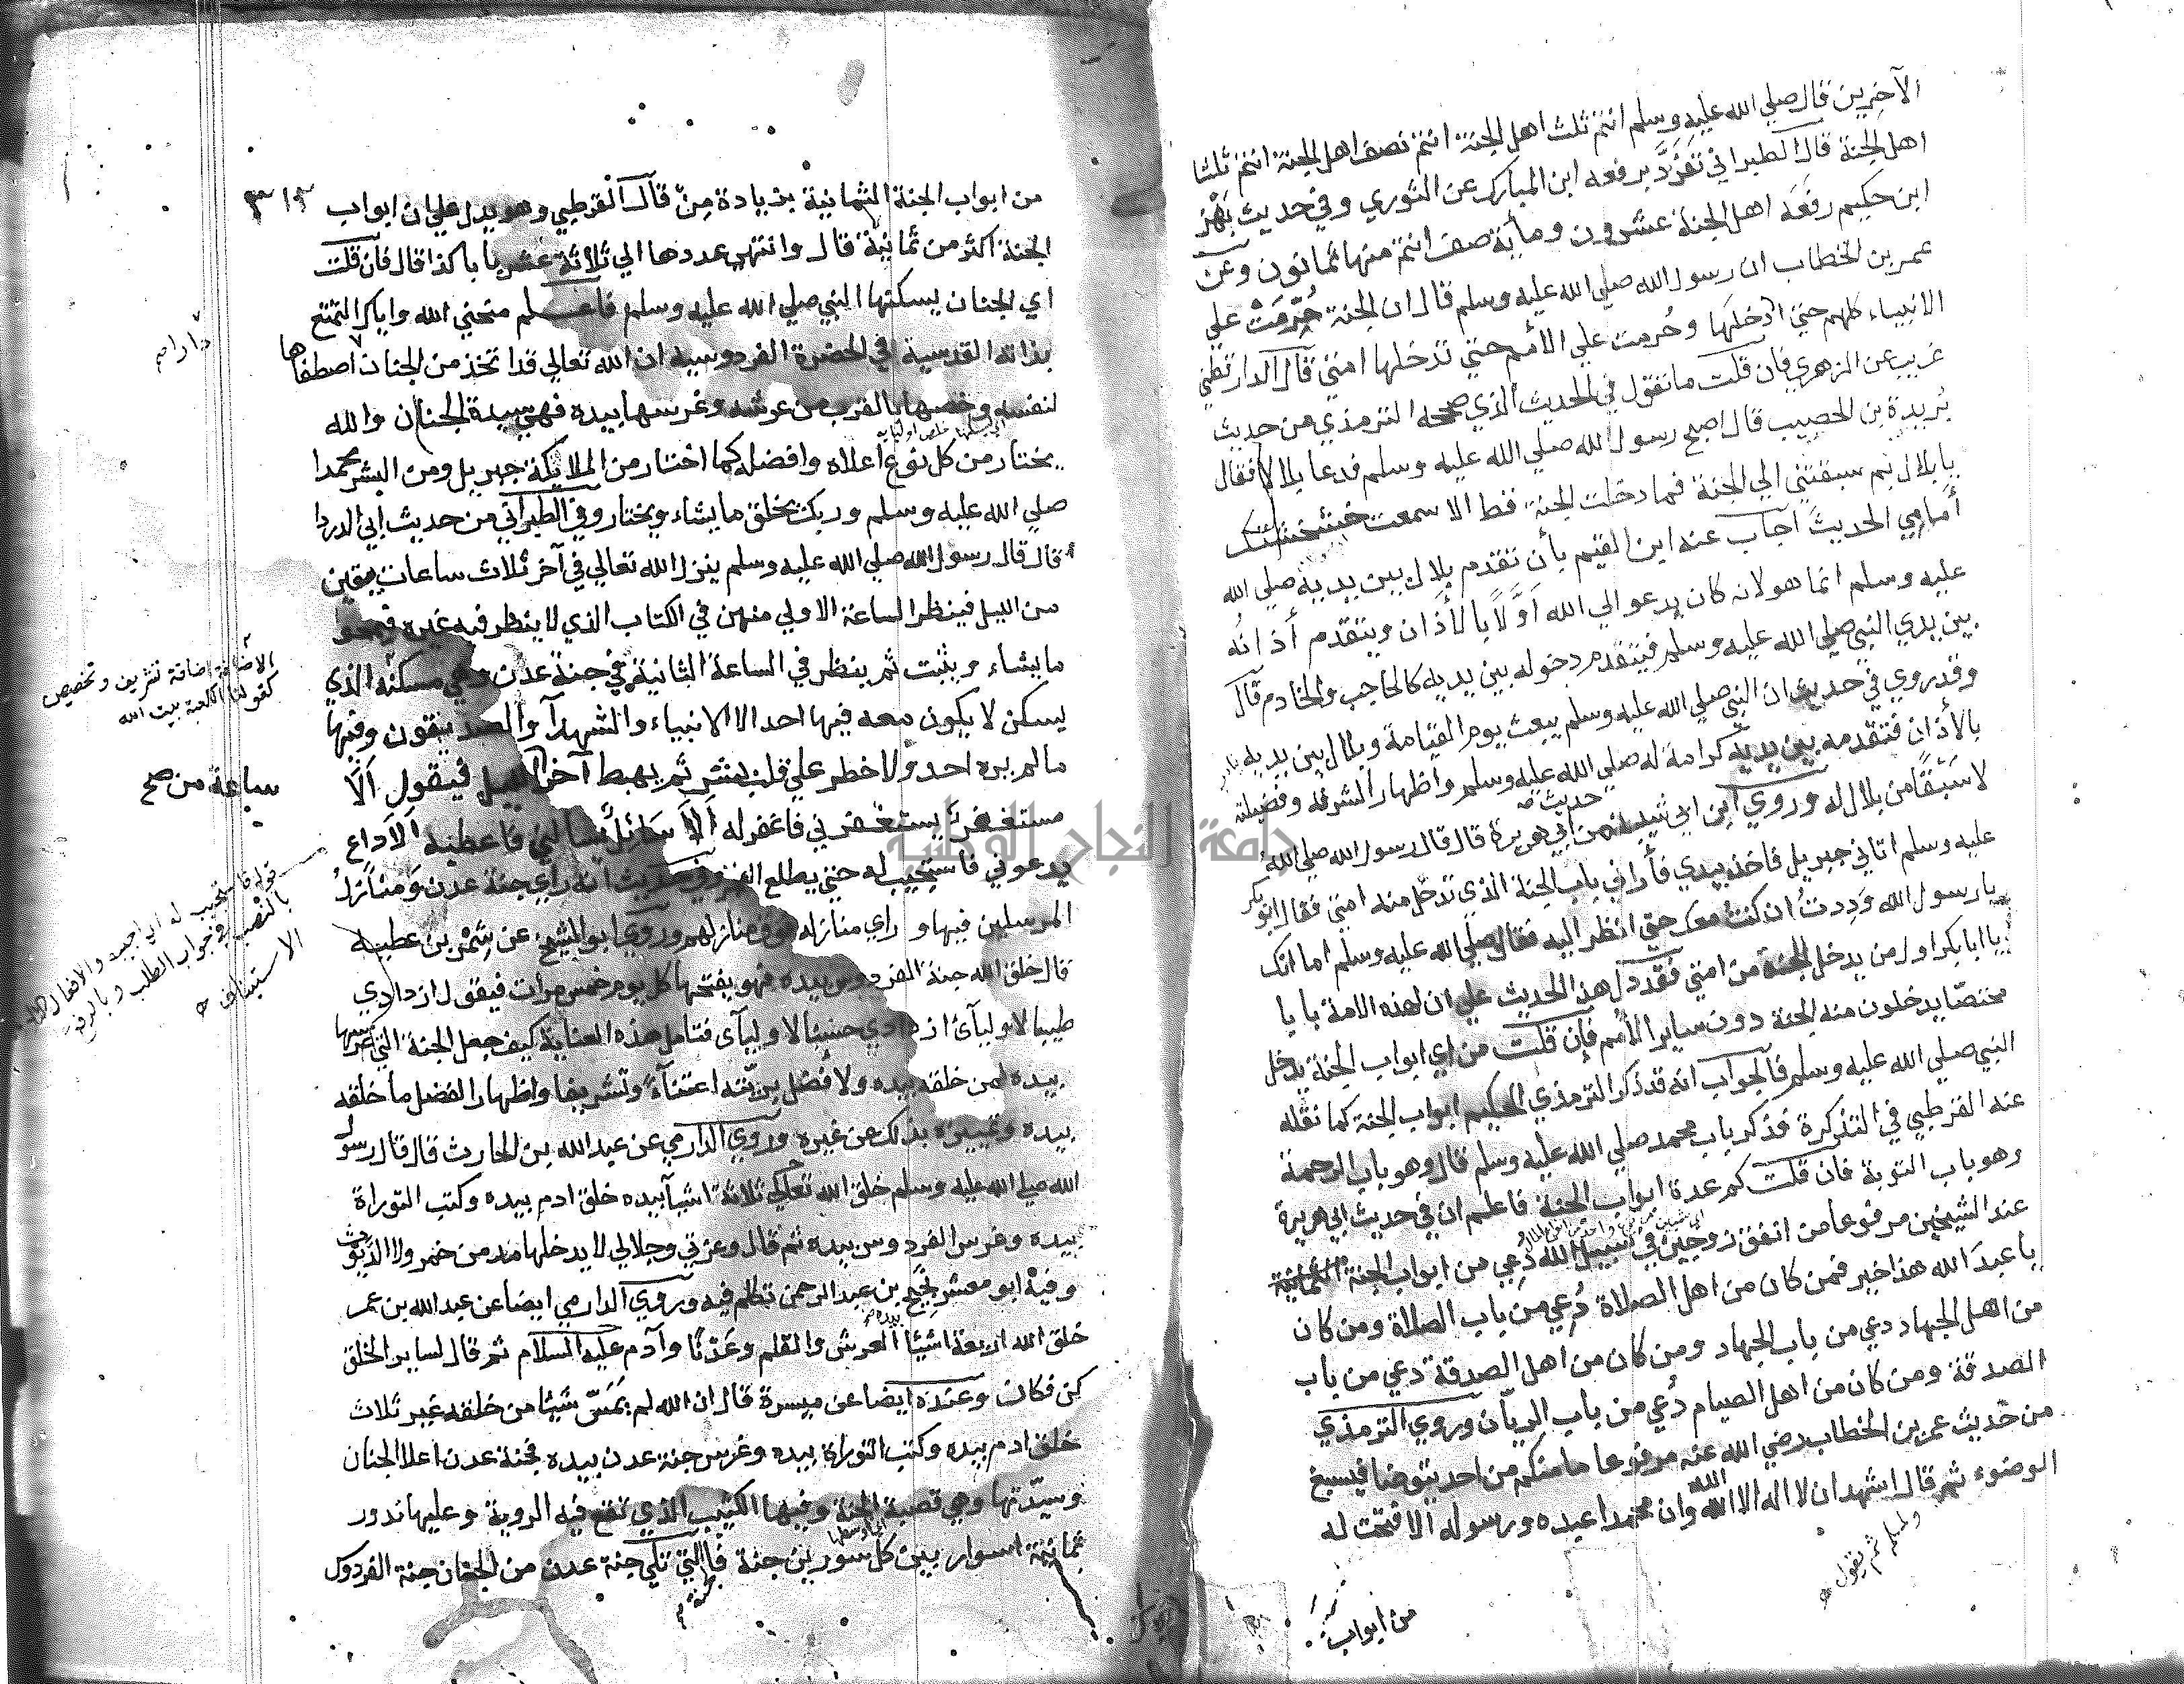 الآخرين قال صلي الله عليه وسلم انتم ثلث اهل الجنة انتم نصف اهل الجنة انتم ثلثا
اهل الجنة قال الطبراني تَفَرَّدَ برفعه ابن المبارك عن الثوري وفي حديث بَهْز
ابن حكيم رفعه اهل الجنة عشرون وماية صف انتم منها ثمانون وعن
عمر بن الخطاب ان رسول الله صلي الله عليه وسلم قال ان الجنة حُرِّمَتْ علي
الانبياء كلهم حتي ادخلها وحُرمت علي الأمم حتي تدخلها امتي قال الدارقطني
غريب عن الزهري فان قلت ما تقول في الحديث الذي صححه الترمذي من حديث
بُريدة بن الحصيب قال اصبح رسول الله صلي الله عليه وسلم فدعا بلالا فقال
يا بلال بم سبقتني الي الجنة فما دخلت الجنة قط الا سمعت خشخشتك
أمامي الحديث اجاب عنه ابن القيم بأن تقدم بلال بين يديه صلي الله
عليه وسلم انما هو لانه كان يدعو الي الله اوَّلًا بالأذان ويتقدم أذانُه
بين يدي النبي صلي الله عليه وسلم فيتقدم دخوله بين يديه كالحاجب والخادم قال
وقد روي في حديث ان النبي صلي الله عليه وسلم يبعث يوم القيامة وبلال بين يديه
بالأذان فتقدمه بين يديه كرامة له صلي الله عليه وسلم واظهارا لشرفه وفضيلته
لا سَبْقًا من بلال له وروي ابن ابي شيبة من حديث ابي هريرة قال قال رسول الله صلي الله
عليه وسلم اتاني جبريل فاخذ بيدي فأراني باب الجنة الذي تدخل منه امتي فقال ابو بكر
يا رسول الله وَدِدتُ ان كنتُ معك حتي انظر اليه فقال صلي الله عليه وسلم اما انك
يا ابا بكر اول من يدخل الجنة من امتي فقد دل هذا الحديث علي ان لهذه الامة بابا
مختصّا يدخلون منه الجنة دون ساير الأمم فإن قلت من اي ابواب الجنة يدخل
النبي صلي الله عليه وسلم فالجواب انه قد ذكر الترمذي الحكيم ابواب الجنة كما نقله
عنه القرطبي في التذكرة فذكر باب محمد صلي الله عليه وسلم قال وهو باب الرحمة
وهو باب التوبة فان قلت كم عدة ابواب الجنة فاعلم ان في حديث ابي هريرة
عند الشيخين مرفوعا من انفق زوجين في سبيل الله دُعِي من ابواب الجنة الثمانية
يا عبدَ الله هذا خير فمن كان من اهل الصلاة دُعي من باب الصلاة ومن كان
من اهل الجهاد دعي من باب الجهاد ومن كان من اهل الصدقة دعي من باب
الصدقة ومن كان من اهل الصيام دُعي من باب الريآن وروي الترمذي
من حديث عمر بن الخطاب رضي الله عنه مرفوعا ما منكم من احد يتوضا فيسبغ
الوضوء ثم قال اشهد ان لا اله الا الله وان محمدا عبده ورسوله الا فتحت له
ولمسلم ثم يقول
من ابواب
من ابواب الجنة الثمانية بزيادة مِنْ قال القرطبي وهو يدل علي ان ابواب
الجنة اكثر من ثمانية قال وانتهي عددها الي ثلاثة عشر بابا كذا قال فان قلت
اي الجنان يسكنها النبي صلي الله عليه وسلم فاعلم متعني الله واياك التمتع
بذاته القدسية في الحضرة الفردوسية ان الله تعالي قد اتخذ من الجنان اصطفاها
لنفسه وخصها بالقرب من عرشه وغرسها بيده فهي سيدة الجنان والله
يختار من كل نوع أعلاه وافضله كما اختار من الملايكة جبريل ومن البشر محمدا
صلي الله عليه وسلم وربك يخلق ما يشاء ويختار وفي الطبراني من حديث ابي الدردا
قال قال رسول الله صلي الله عليه وسلم ينزل الله تعالي في آخر ثلاث ساعات يبقين
من الليل فينظر الساعة الاولي منهن في الكتاب الذي لا ينظر فيه غيره فيمحو
ما يشاء ويثبت ثم ينظر في الساعة الثانية في جنة عدن وهي مسكنه الذي
يسكن لا يكون معه فيها احد الا الانبياء والشهدآ والصديقون وفيها
ما لم يره احد ولا خطر علي قلب بشر ثم يهبط آخر الليل فيقول اَلَا
مستغفر يستغفرني فاغفر له اَلَا سَائل يسالني فاعطيه اَلاَ داع
يدعوني فاستجيب له حتي يطلع الفجر وفي حديث انه راي جنة عدن ومنازل
المرسلين فيها وراي منازله فوق منازلهم وروي ابو الشيخ عن شِمْر بن عطية
قال خلق الله جنة الفردوس بيده فهو يفتحها كل يوم خمس مرات فيقول ازدادي
طيبا لاوليآئ ازدادي حسنا لاوليآى فتامل هذه العناية كيف جعل الجنة التي غرسها
بيده لمن خلقه بيده ولافضل بريّته اعتنآءً وتشريفا واظهارا لفضل ما خلقه
بيده وتمييزه بذلك عن غيره وروي الدارمي عن عبد الله بن الحارث قال قال رسول
الله صلي الله عليه وسلم خلق الله تعالي ثلاثة اشيآ بيده خلق ادم بيده وكتب التوراة
بيده وغرس الفردوس بيده ثم قال وعزتي وجلالي لا يدخلها مدمن خمر ولا الديوث
وفيه ابو معشر نجيح بن عبد الرحمن تكلم فيه وروي الدارمي ايضا عن عبد الله بن عمر
خلق الله اربعة اشيئا بيده العرش والقلم وعَدْنًا وآدم عليه السلام ثم قال لساير الخلق
كن فكان وعنده ايضا عن ميسرة قال ان الله لم يَمَسّ شيئا من خلقه غير ثلاث
خلق ادم بيده وكتب التوراة بيده وغرس جنة عدن بيده فجنة عدن اعلا الجنان
وسيّدتها وهي قصبة الجنة وفيها الكثيب الذي تقع فيه الروية وعليها تدور
ثمانية اسوار بين كل سورين جنة فالتي تلي جنة عدن من الجنان جنة الفردوس
٣١٢
دارا صح
الاضافة اضافة تشريف وتخصيص
كقولنا الكعبة بيت الله
ساعة من صح
قوله فاستجيب له اي اجيب والافعال
بالنصب في جواب الطلب وبالرفع
الاستيناف
جامعة النجاح الوطنية